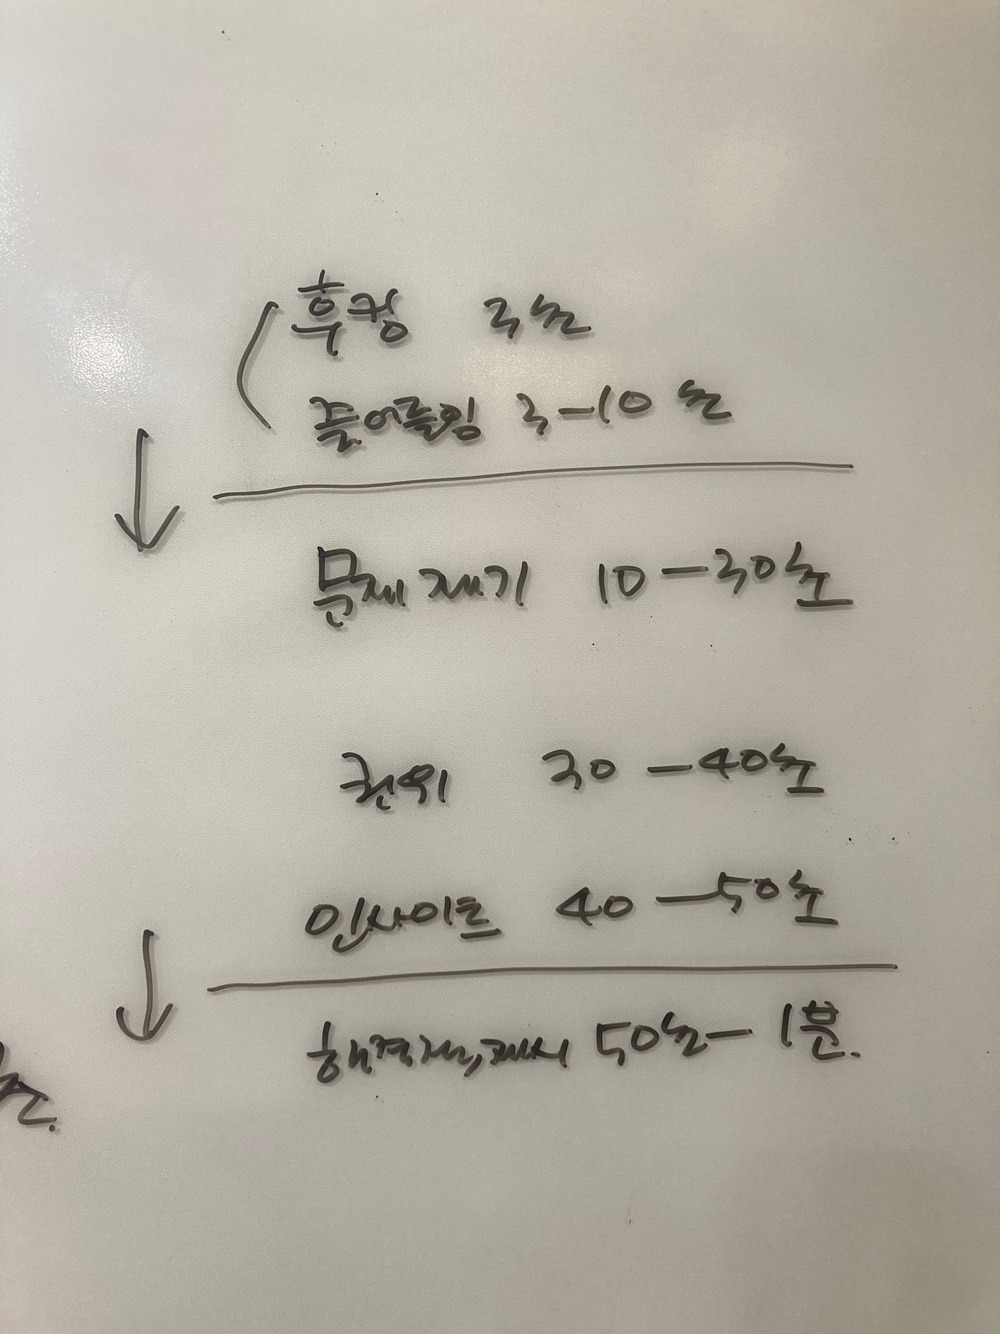 후킹 3초
끌어들임 3-10초
문제 제기 10-30초
권위 30-40초
인사이트 40-50초
해결책, 제시 50초-1분.